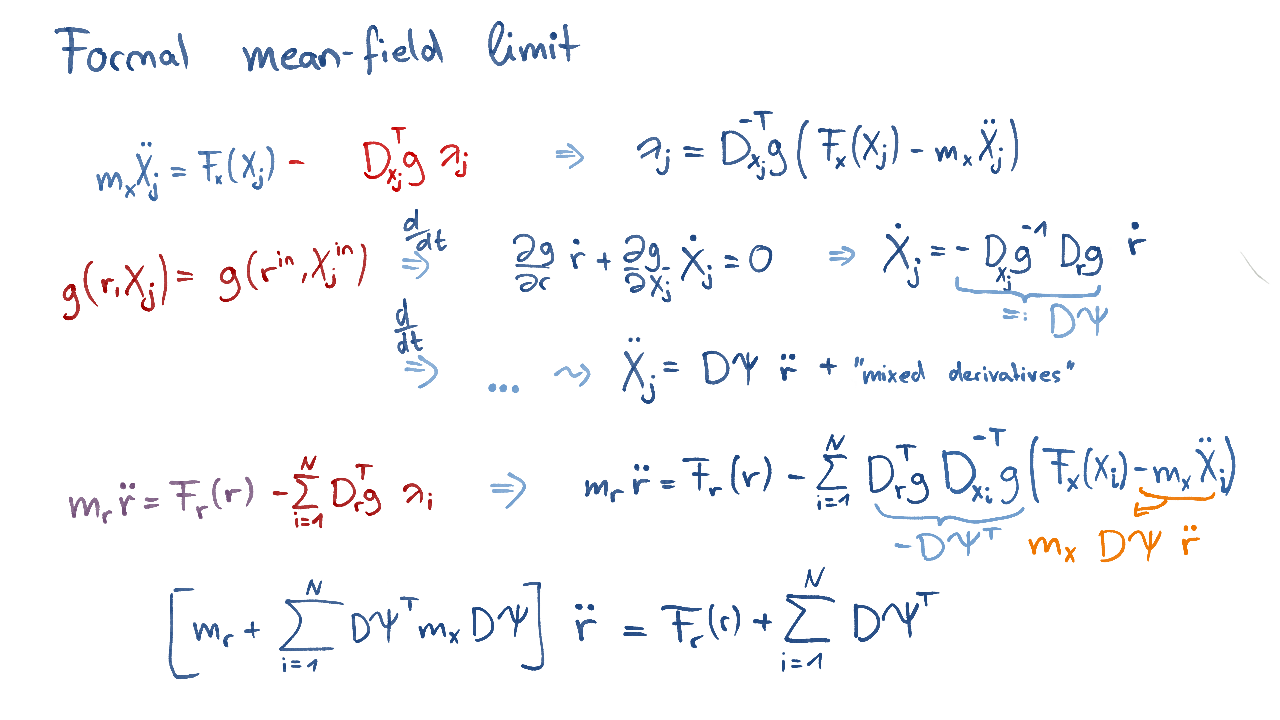 Formal mean-field limit
m_x Ẍ_j = F_x(X_j) - D_{x_j}^T g λ_j ⇒ λ_j = D_{x_j}^{-T} g (F_x(X_j) - m_x Ẍ_j)
g(r, X_j) = g(r^{in}, X_j^{in}) d/dt ⇒ ∂g/∂r ṙ + ∂g/∂X_j Ẋ_j = 0 ⇒ Ẋ_j = - D_{x_j} g^{-1} D_r g ṙ
=: DΨ
d/dt ⇒ ... ⇝ Ẍ_j = DΨ r̈ + "mixed derivatives"
m_r r̈ = F_r(r) - ∑_{i=1}^N D_r^T g λ_i ⇒ m_r r̈ = F_r(r) - ∑_{i=1}^N D_r^T g D_{x_i}^{-T} g (F_x(X_i) - m_x Ẍ_i)
-DΨ^T m_x DΨ r̈
[m_r + ∑_{i=1}^N DΨ^T m_x DΨ] r̈ = F_r(r) + ∑_{i=1}^N DΨ^T